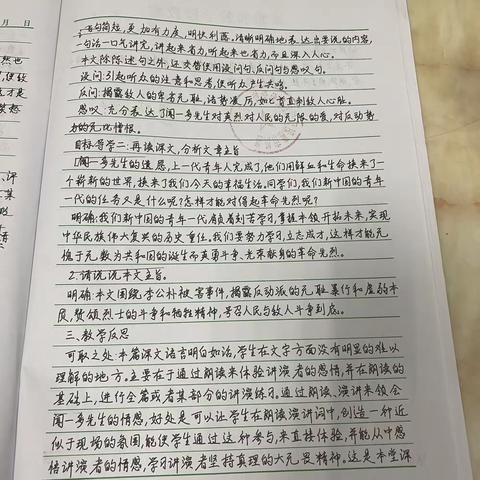 月 日
语句简短，更加有力度，明快利落。清晰明确地表达出要说的内容，
一句话一口气讲完，讲起来省力，听起来也省力，而且深入人心。
本文除陈述句之外，还交替使用设问句、反问句与感叹句。
设问：引起听众的注意和思考，使听众产生共鸣。
反问：揭露敌人的卑者无耻，语势凌厉，如匕首直刺敌人心脏。
感叹：充分表达了闻一多先生对英烈对人民的无限的爱，对反动势
力的无比憎恨。
目标导学二：再读课文，分析文章主旨
1闻一多先生的遗愿，上一代青年人完成了，他们用鲜血和生命换来了一
个崭新的世界，换来了我们今天的幸福生活。同学们，我们新中国的青年
一代的任务又是什么呢？怎样才能对得起革命先烈呢？
明确：我们新中国的青年一代肩负着刻苦学习，掌握本领开拓未来，实现
中华民族伟大复兴的历史重任。我们要努力学习，立志成才，这样才能无
愧于无数为共和国的诞生而英勇斗争、光荣献身的革命先烈。
2.请说说本文主旨。
明确：本文围绕李公朴被害事件，揭露反动派的无耻暴行和虚弱本
质，赞颂烈士的斗争和牺牲精神，号召人民与敌人斗争到底。
三、教学反思
可取之处：本篇课文语言明白如话，学生在文字方面没有明显的难以
理解的地方。主要在于通过朗读来体验讲演者的感情，并在朗读的
基础上，进行全篇或者某部分的讲演练习。通过朗读、演讲来领会
闻一多先生的情感，好处是可以让学生在朗读演讲词中，创造一种近
似于现场的氛围，能使学生通过这种参与，来直接体验，并能从中感
悟讲演者的情感，学习讲演者坚持真理的大无畏精神。这是本堂课